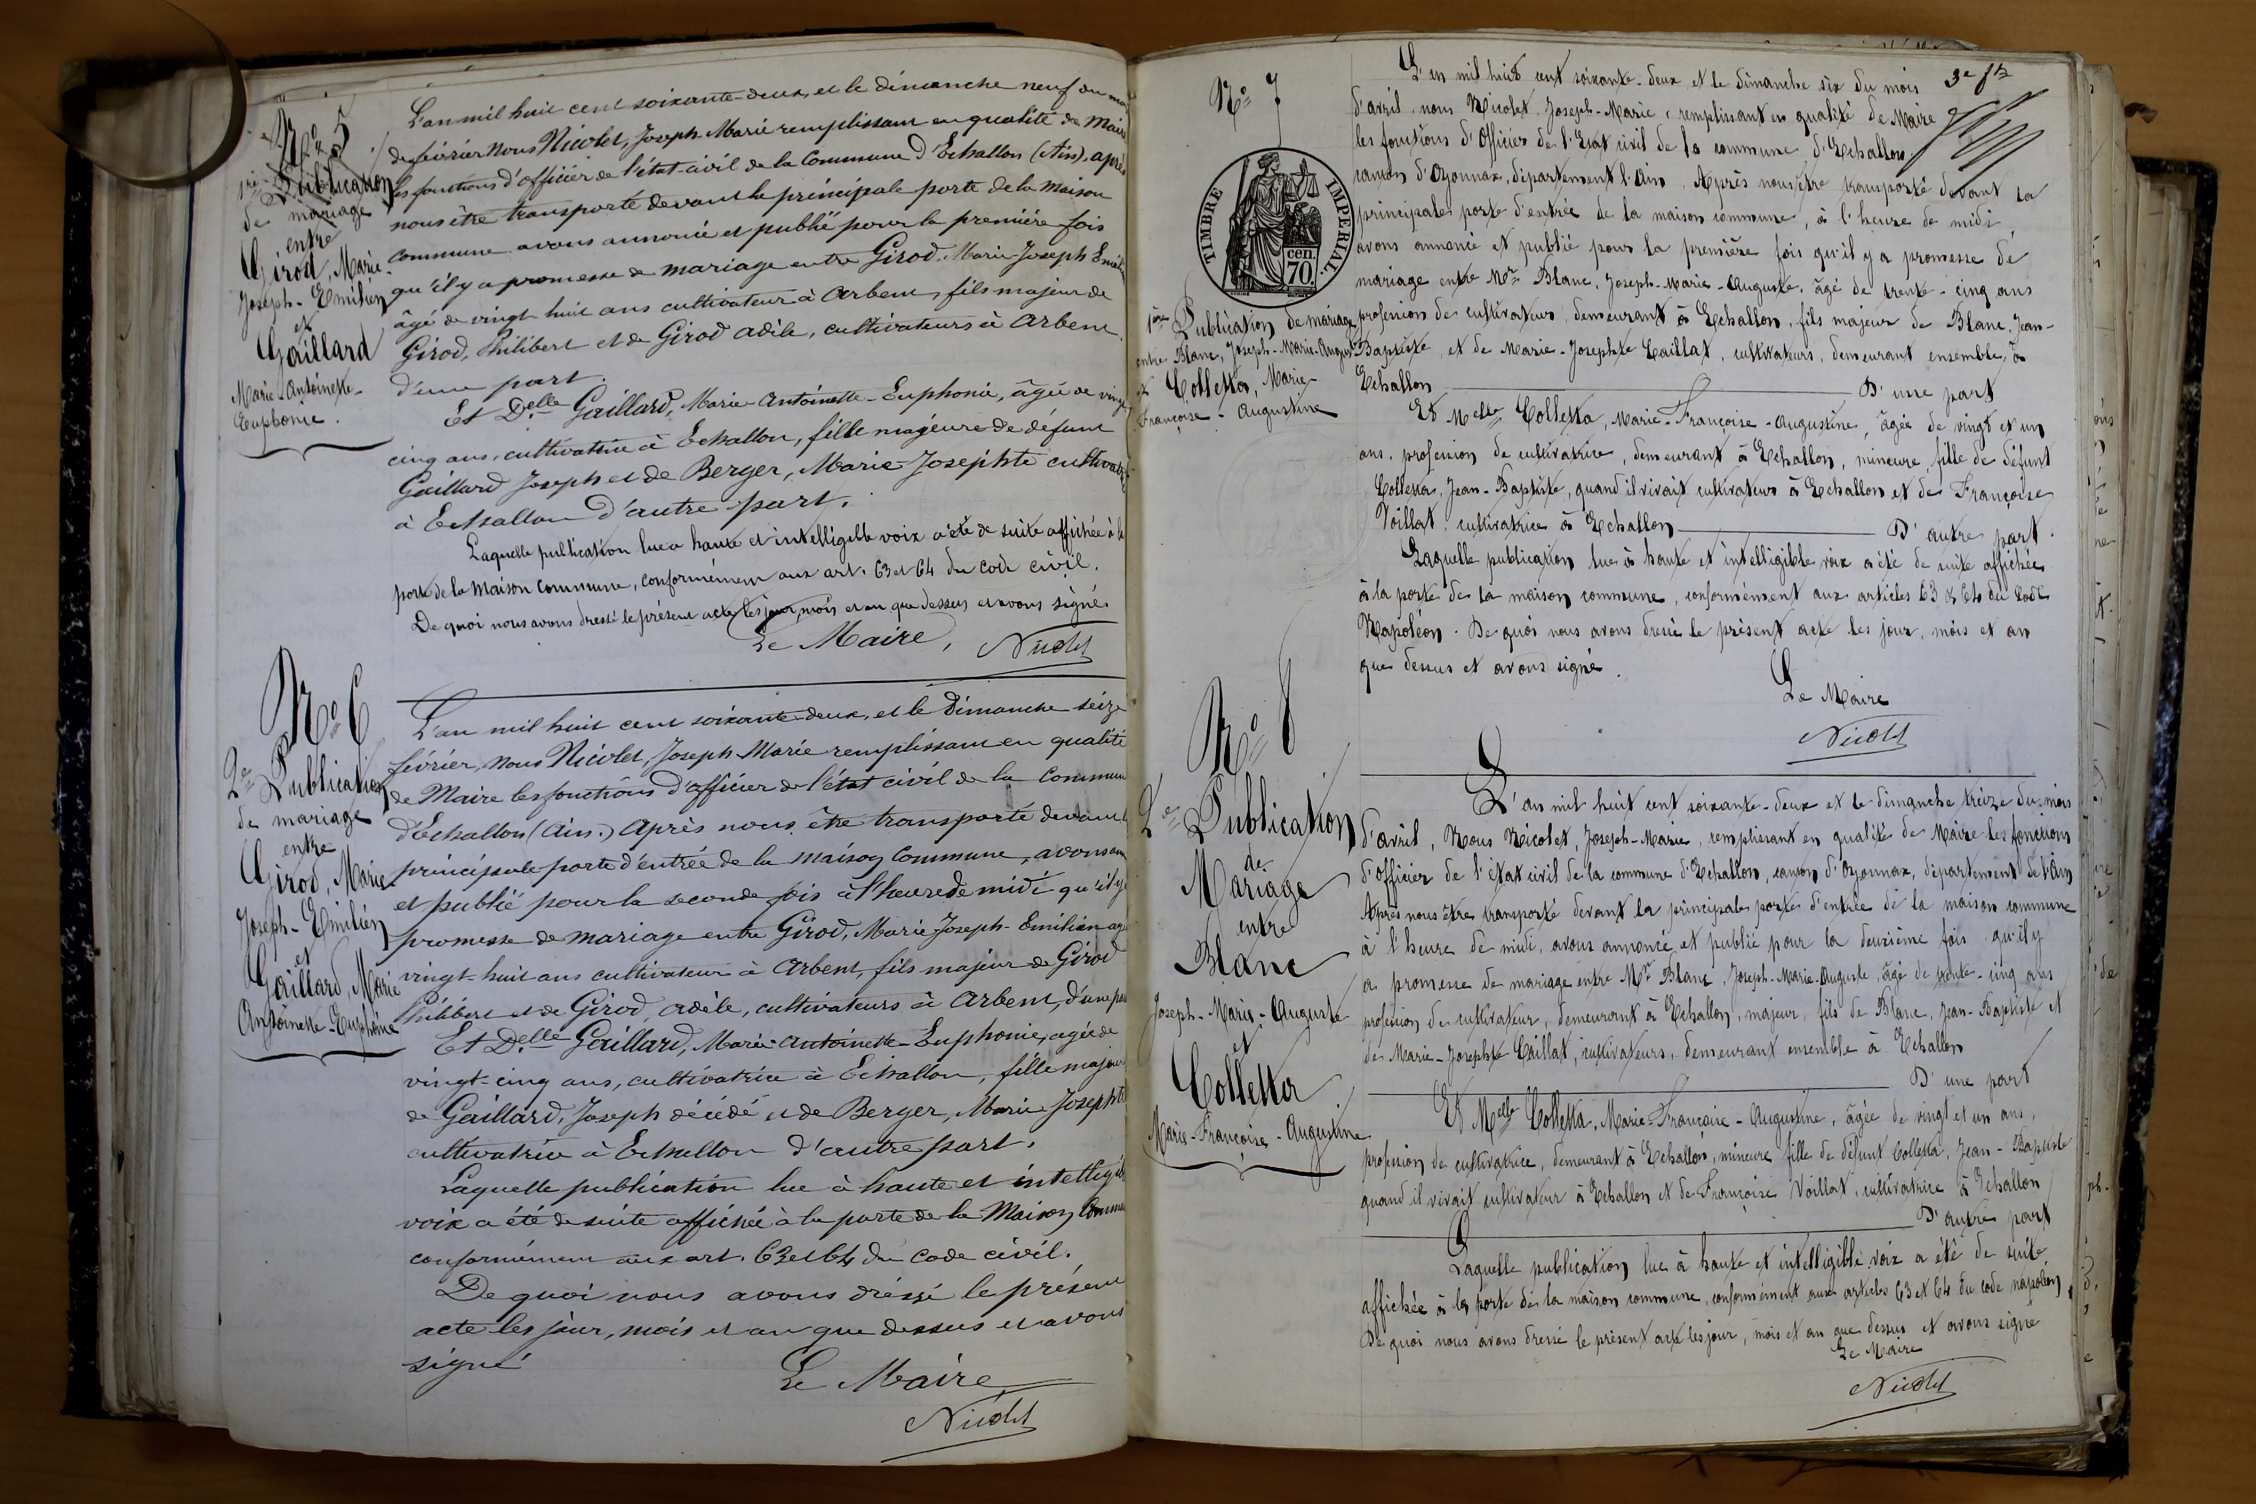 N° 5
1ère Publication
de mariage
entre
Girod, Marie
Joseph-Emilien
et
Gaillard
Marie-Antoinette-
Euphonie.
L'an mil huit cent soixante-deux, et le dimanche neuf du
de février nous Nicolet, Joseph-Marie remplissant en qualité de Maire
les fonctions d'officier de l'état-civil de la Commune d'Echallon (Ain), après
nous être transporté devant la principale porte de la maison
commune avons annoncé et publié pour la première fois
qu'il y a promesse de mariage entre Girod, Marie-Joseph
âgé de vingt huit ans cultivateur à Arbent, fils majeur de
Girod, Philibert et de Girod adèle, cultivateurs à Arbent
d'une part.
Et Delle Gaillard, Marie-Antoinette-Euphonie, âgée de vingt
cinq ans, cultivatrice à Echallon, fille majeure de défunt
Gaillard Joseph et de Berger, Marie-Josephte
à Echallon d'autre part.
Laquelle publication lue a haute et intelligible voix a été de suite affichée à la
porte de la Maison Commune, conformément aux art. 63 et 64 du code civil.
De quoi nous avons dressé le présent acte les jour, mois et an que dessus et avons signé
Le Maire, Nicolet
N° 6
2e Publication
de mariage
entre
Girod, Marie
Joseph-Emilien
et
Gaillard, Marie
Antoinette-Euphonie
L'an mil huit cent soixante-deux, et le Dimanche seize
février, nous Nicolet, Joseph-Marie remplissant en qualité
de Maire les fonctions d'officier de l'état civil de la Commune
d'Echallon (Ain.) Après nous être transporté devant
principale porte d'entrée de la maison commune, avons
et publié pour la seconde fois à l'heure de midi qu'il y
promesse de mariage entre Girod, Marie-Joseph-Emilien
vingt-huit ans cultivateur à Arbent, fils majeur de Girod
Philibert et de Girod, adèle, cultivateurs à Arbent, d'une part
Et Delle Gaillard, Marie-Antoinette-Euphonie, agée de
vingt-cinq ans, cultivatrice à Echallon, fille majeure
de Gaillard, Joseph décédé et de Berger, Marie Josephte
cultivatrice à Echallon d'autre part.
Laquelle publication lue à haute et
voix a été de suite affichée à la porte de la Maison
conformément aux art. 63 et 64 du code civil.
De quoi nous avons dressé le présent
acte les jour, mois et an que dessus et avons
signé
Le Maire
Nicolet
N° 7
3e ft
TIMBRE IMPERIAL.
70. cen.
1ère Publication de mariage
entre Blanc, Joseph-Marie-Auguste
et Colletta, Marie-
Françoise-Augustine
L'an mil huit cent soixante-deux et le dimanche six du mois
d'avril nous Nicolet Joseph-Marie, remplissant en qualité de Maire
les fonctions d'Officier de l'Etat civil de la commune d'Echallon
canton d'Oyonnax, département l'Ain. Après nous être transporté devant la
principale porte d'entrée de la maison commune, à l'heure de midi,
avons annoncé et publié pour la première fois qu'il y a promesse de
mariage entre Mr Blanc, Joseph-Marie-Auguste, âgé de trente-cinq ans
profession de cultivateur, demeurant à Echallon, fils majeur de Blanc, Jean-
Baptiste, et de Marie-Josephte Caillat, cultivateurs, demeurant ensemble, à
Echallon D'une part
Et Melle Colletta, Marie-Françoise-Augustine, âgée de vingt et un
ans, profession de cultivatrice, demeurant à Echallon, mineure, fille de défunt
Colletta, Jean-Baptiste, quand il vivait cultivateur à Echallon et de Françoise
Voillat, cultivatrice à Echallon D'autre part.
Laquelle publication lue à haute et intelligible voix a été de suite affichée
à la porte de la maison commune, conformément aux articles 63 & 64 du Code
Napoléon. De quoi nous avons dressé le présent acte les jour, mois et an
que dessus et avons signé.
Le Maire
Nicolet
N° 8
2e Publication
de
Mariage
entre
Blanc
Joseph-Marie-Auguste
et
Colletta
Marie-Françoise-Augustine
L'an mil huit cent soixante-deux et le dimanche treize du mois
d'avril, Nous Nicolet, Joseph-Marie, remplissant en qualité de Maire les fonctions
d'officier de l'état civil de la commune d'Echallon, canton d'Oyonnax, département de l'Ain
Après nous être transporté devant la principale porte d'entrée de la maison commune
à l'heure de midi, avons annoncé et publié pour la deuxième fois qu'il y
a promesse de mariage entre Mr Blanc, Joseph-Marie-Auguste, âgé de trente-cinq ans
profession de cultivateur, demeurant à Echallon, majeur, fils de Blanc, Jean-Baptiste et
de Marie-Josephte Caillat, cultivateurs, demeurant ensemble à Echallon
D'une part
Et Melle Colletta, Marie-Françoise-Augustine, âgée de vingt et un ans,
profession de cultivatrice, demeurant à Echallon, mineure fille de défunt Colletta, Jean-Baptiste
quand il vivait cultivateur à Echallon et de Françoise Voillat, cultivatrice à Echallon
D'autre part
Laquelle publication lue à haute et intelligible voix a été de suite
affichée à la porte de la maison commune, conformément aux articles 63 et 64 du code napoléon,
De quoi nous avons dressé le présent acte les jour, mois et an que dessus et avons signé
Le Maire
Nicolet